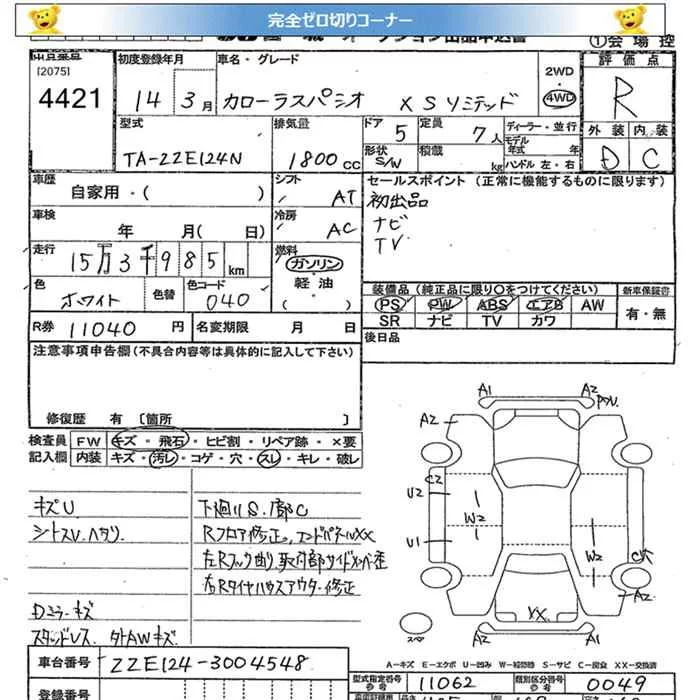 完全ゼロ切りコーナー
①会場控
出品番号
[2075]
4421
初度登録年月
14年3月
車名・グレード
カローラスパシオ XSリミテッド
2WD
4WD
評価点
R
外装 内装
D C
型式
TA-ZZE124N
排気量
1800cc
ドア 5
定員 7人
ディーラー・並行
モデル年式 年
形状 S/W
積載 kg
ハンドル 左・右
車歴
自家用・( )
シフト AT
セールスポイント(正常に機能するものに限ります)
初出品
ナビ
TV
車検
年 月(日)
冷房 AC
走行
15万3千985km
燃料
ガソリン
軽油
( )
色
ホワイト
色替
色コード
040
装備品(純正品に限り○をつけてください)
新車保証書
PS PW ABS エアB AW
SR ナビ TV カワ
有・無
R券 11040円
名変期限 月 日
後日品
注意事項申告欄(不具合内容等は具体的に記入して下さい)
修復歴 有 [箇所 ]
検査員記入欄
FW キズ・飛石・ヒビ割・リペア跡・×要
内装 キズ・汚レ・コゲ・穴・スレ・キレ・破レ
キズU
シトスレ.ヘタリ
Dミラーキズ
スタッドレス 外AWキズ
下廻りS.1部C
Rフロア修正。エンドパネルXX
左Rフック曲り取付部サイドメンバー歪
右Rタイヤハウスアウター修正
A1
A2
A2
C2
U2
U1
W2
W2
A2
XX
スペ
A-キズ E-エクボ U-凹み W-補修跡 S-サビ C-腐食 XX-交換済
車台番号
ZZE124-3004548
型式指定番号
11062
類別区分番号
0049
登録番号